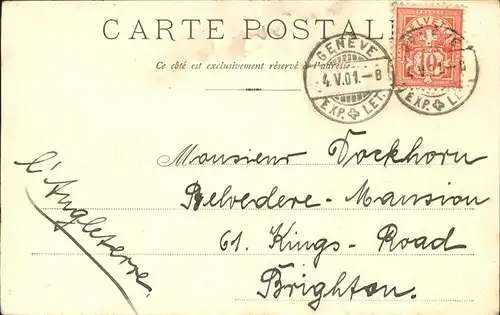 CARTE POSTALE
Ce côté est exclusivement réservé à l'adresse
GENÈVE
4.V.01.-8
EXP. LET.
HELVETIA
FRANCO
10
Monsieur Dockhorn
Belvedere-Mansion
61. Kings-Road
Brighton.
l'Angleterre.